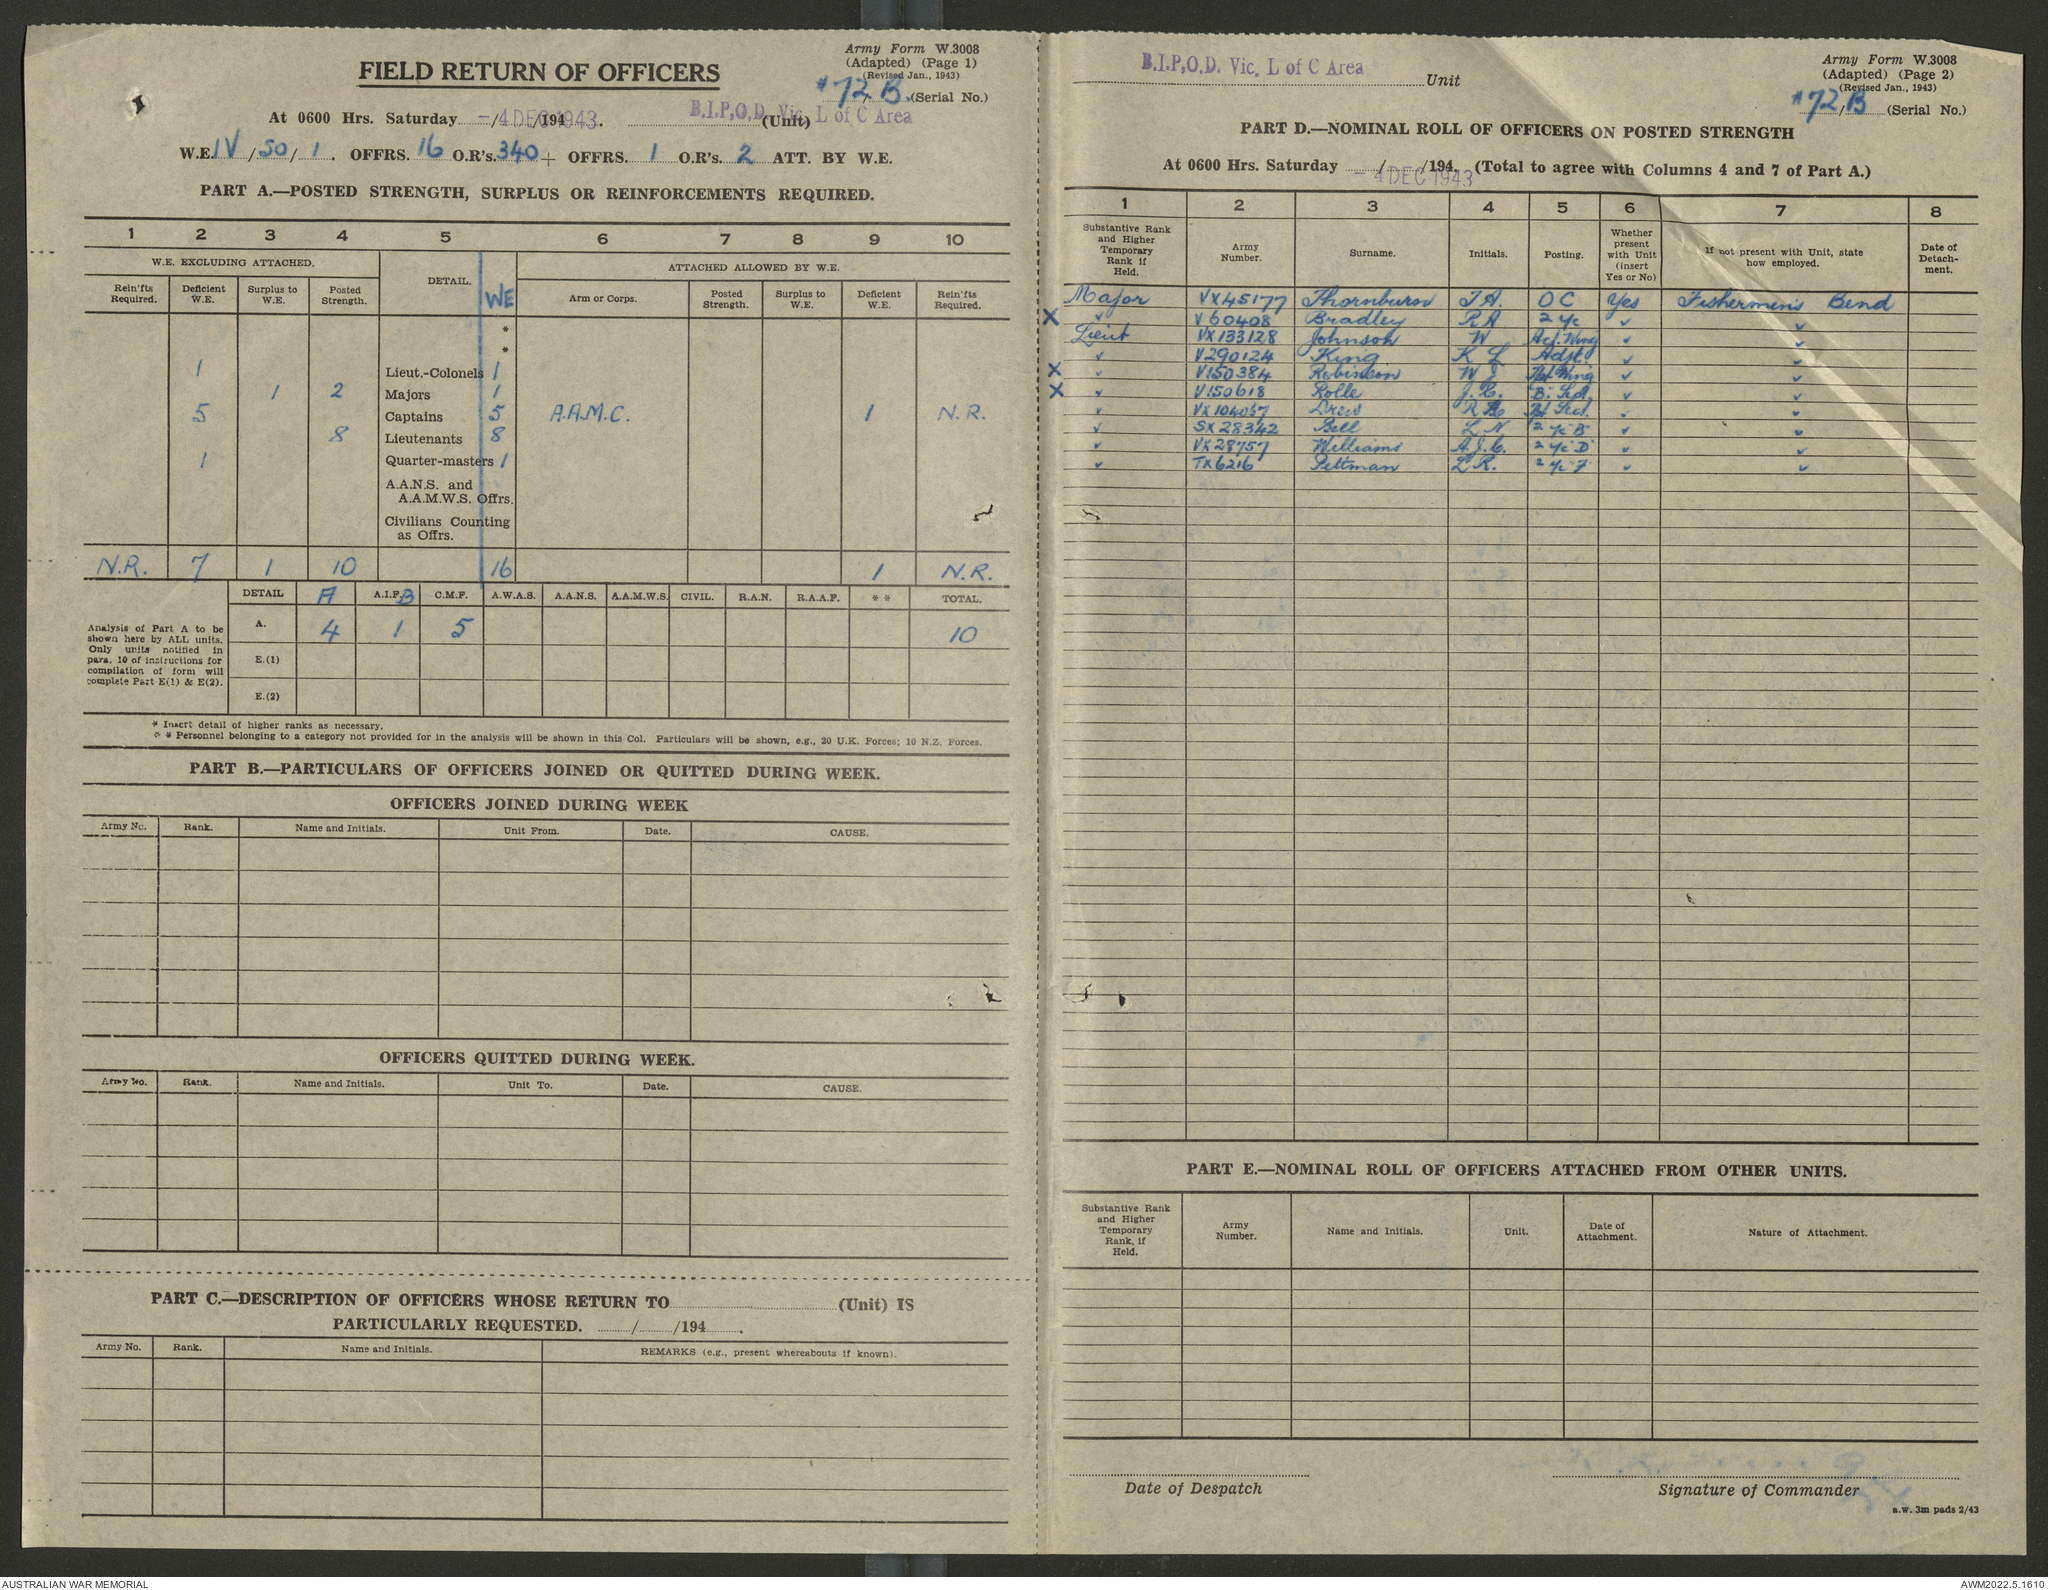 Army Form W.3008
(Adapted) (Page 1)
(Revised Jan., 1943)
FIELD RETURN OF OFFICERS
*72/B (Serial No.)
At 0600 Hrs. Saturday - 4 DEC 1943 /194 . B.I.P.O.D. Vic. L of C Area (Unit)
W.E. IV / 50 / 1 . OFFRS. 16 O.R's. 340 + OFFRS. 1 O.R's. 2 ATT. BY W.E.
PART A.—POSTED STRENGTH, SURPLUS OR REINFORCEMENTS REQUIRED.
1 2 3 4 5 6 7 8 9 10
W.E. EXCLUDING ATTACHED. DETAIL. WE ATTACHED ALLOWED BY W.E.
Rein'fts Required. Deficient W.E. Surplus to W.E. Posted Strength. Arm or Corps. Posted Strength. Surplus to W.E. Deficient W.E. Rein'fts Required.
*
*
1 Lieut.-Colonels 1
1 2 Majors 1
5 Captains 5 A.A.M.C. 1 N.R.
8 Lieutenants 8
1 Quarter-masters 1
A.A.N.S. and
A.A.M.W.S. Offrs.
Civilians Counting
as Offrs.
N.R. 7 1 10 16 1 N.R.
DETAIL A A.I.F. B C.M.F. A.W.A.S. A.A.N.S. A.A.M.W.S. CIVIL. R.A.N. R.A.A.F. * * TOTAL.
Analysis of Part A to be
shown here by ALL units.
Only units notified in
para. 10 of instructions for
compilation of form will
complete Part E(1) & E(2).
A. 4 1 5 10
E.(1)
E.(2)
* Insert detail of higher ranks as necessary.
* * Personnel belonging to a category not provided for in the analysis will be shown in this Col. Particulars will be shown, e.g., 20 U.K. Forces; 10 N.Z. Forces.
PART B.—PARTICULARS OF OFFICERS JOINED OR QUITTED DURING WEEK.
OFFICERS JOINED DURING WEEK
Army No. Rank. Name and Initials. Unit From. Date. CAUSE.
OFFICERS QUITTED DURING WEEK.
Army No. Rank. Name and Initials. Unit To. Date. CAUSE.
PART C.—DESCRIPTION OF OFFICERS WHOSE RETURN TO (Unit) IS
PARTICULARLY REQUESTED. / /194 .
Army No. Rank. Name and Initials. REMARKS (e.g., present whereabouts if known).
B.I.P.O.D. Vic. L of C Area Unit
Army Form W.3008
(Adapted) (Page 2)
(Revised Jan., 1943)
*72/B (Serial No.)
PART D.—NOMINAL ROLL OF OFFICERS ON POSTED STRENGTH
At 0600 Hrs. Saturday / /194 . - 4 DEC 1943 (Total to agree with Columns 4 and 7 of Part A.)
1 2 3 4 5 6 7 8
Substantive Rank and Higher Temporary Rank if Held. Army Number. Surname. Initials. Posting. Whether present with Unit (insert Yes or No) If not present with Unit, state how employed. Date of Detachment.
Major VX45177 Thornburn T.A. OC Yes Fishermen's Bend
X ✓ V60408 Bradley R A 2 i/c ✓ ✓
Lieut VX133128 Johnson W Wing ✓ ✓
✓ V290124 King K L Adjt. ✓ ✓
X ✓ V150384 Robinson W Wing ✓ ✓
X ✓ V150618 Rolle J.R. "B" Sed. ✓ ✓
✓ VX104057 Drew Sed. ✓ ✓
✓ SX28342 Gell L N 2 i/c "B" ✓ ✓
✓ VX28757 Williams A.J.C. 2 i/c "D" ✓ ✓
✓ TX6216 Pettman L R. 2 i/c "F" ✓ ✓
PART E.—NOMINAL ROLL OF OFFICERS ATTACHED FROM OTHER UNITS.
Substantive Rank and Higher Temporary Rank, if Held. Army Number. Name and Initials. Unit. Date of Attachment. Nature of Attachment.
Date of Despatch
Signature of Commander
a.w. 3m pads 2/43
AUSTRALIAN WAR MEMORIAL
AWM2022.5.1610